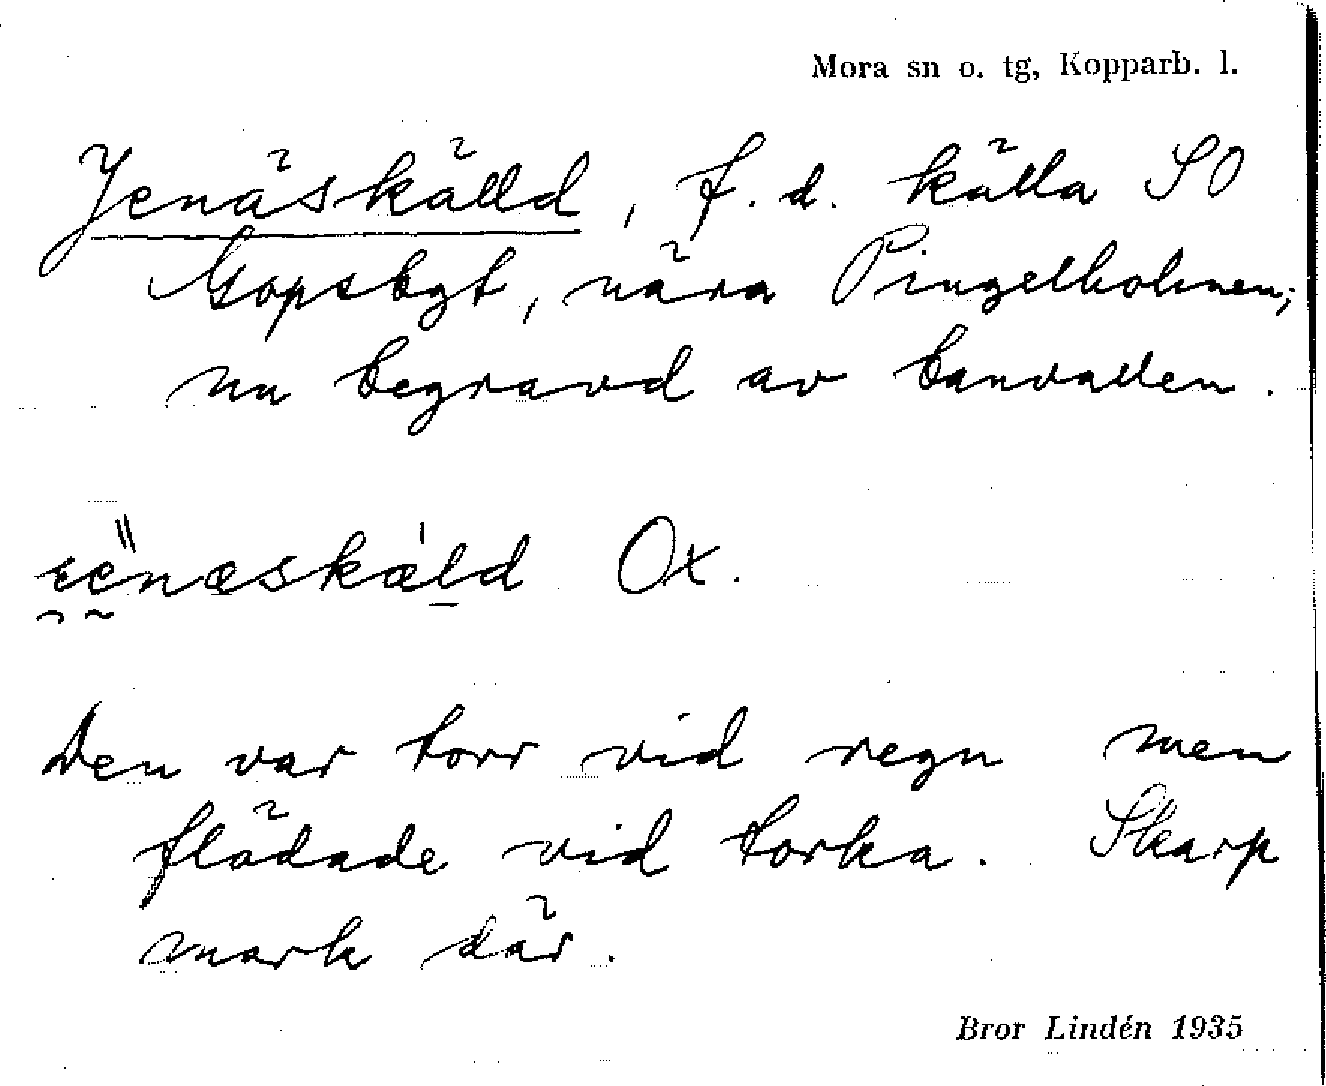 Mora sn o. tg, Kopparb. l.
Jenäskälld, f. d. källa SO
Gopsbgt, nära Pingelholmen;
nu begravd av banvallen.
Ox.
Den var torr vid regn men
flödade vid torka. Skarp
mark där.
Bror Lindén 1935